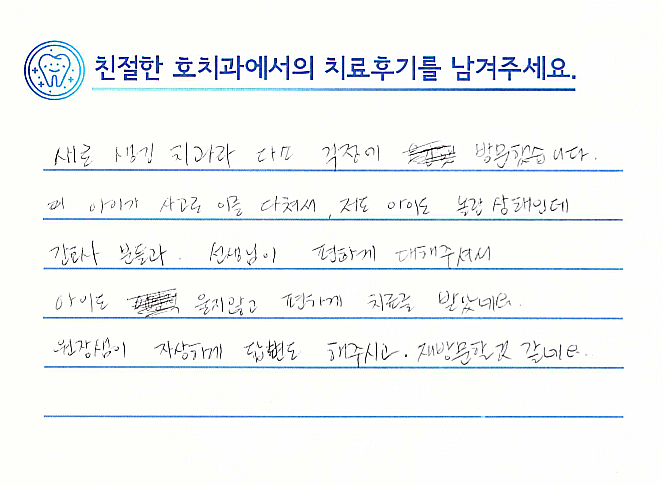 친절한 호치과에서의 치료후기를 남겨주세요.
새로 생긴 치과라 다소 걱정에 방문했습니다.
아이가 사고로 이를 다쳐서, 저도 아이도 놀람 상태인데
간호사 분들과. 선생님이 편하게 대해주셔서
아이도 울지않고 편하게 치료를 받았네요.
원장님이 자상하게 답변도 해주시고. 재방문할것 같네요.